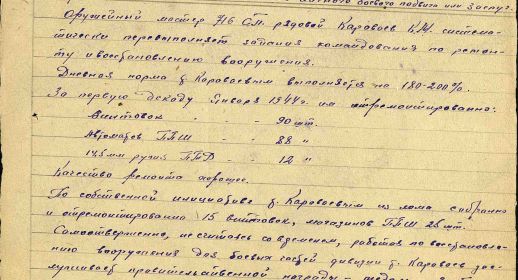 боевого подвига или заслуг
Оружейный мастер 716 СП. рядовой Караваев К.М. система-
тически перевыполняет задания командования по ремон-
ту и восстановлению вооружения.
Дневная норма т. Караваевым выполняется на 180-200%.
За первую декаду января 1944г. им отремонтированно:
Винтовок - - 90 шт.
Автоматов ППШ - - 28 "
14,5 мм ружей ПТД - - 12 "
Качество ремонта хорошее.
По собственной инициативе т. Караваевым из лома собранно
и отремонтированно 15 винтовок, магазинов ППШ 25 шт.
Самоотверженно, не считаясь со временем, работая по восстановле-
нию вооружения для боевых частей дивизии т. Караваев зас-
луживает правительственной награды -